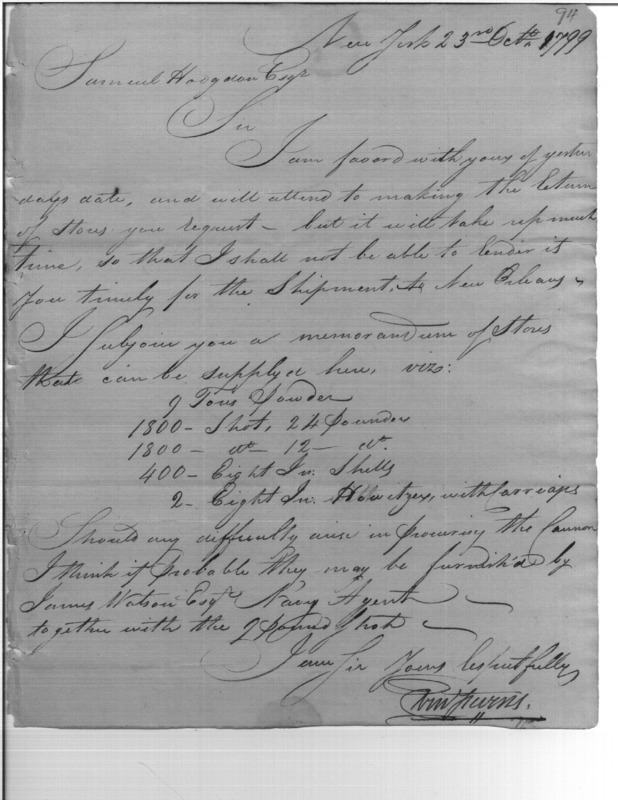 94
New York 23rd Octr 1799
Samuel Hodgdon Esqr
Sir
I am favord with yours of yester
days date, and will attend to making the Return
of Stores you request - but it will take up much
time, so that I shall not be able to render it
You timely for the Shipment, to New Orleans -
I Subjoin you a memorandum of Stores
that can be supplyd here, viz:
9 Tons Powder
1800 - Shot, 24 pounder
1800 - do - 12 - do.
400 - Eight In: Shells
2 - Eight In: Howitzer, with carriages
Should any difficulty arise in procuring the Cannon
I think it probable they may be furnish'd by
James Watson Esqr Navy Agent
together with the 9 Pound Shot
I am Sir Yours Respectfully